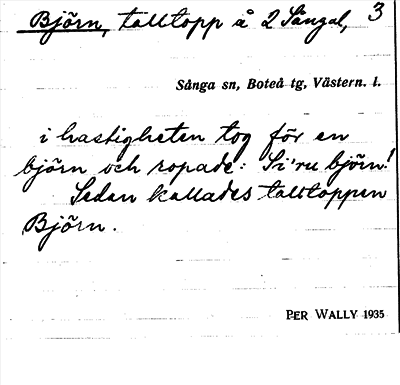 Björn, talltopp å 2 Sångal, 3
Sånga sn, Boteå tg, Västern. l.
i hastigheten tog för en
björn och ropade: Si'ru björn!
Sedan kallades talltoppen
Björn.
PER WALLY 1935